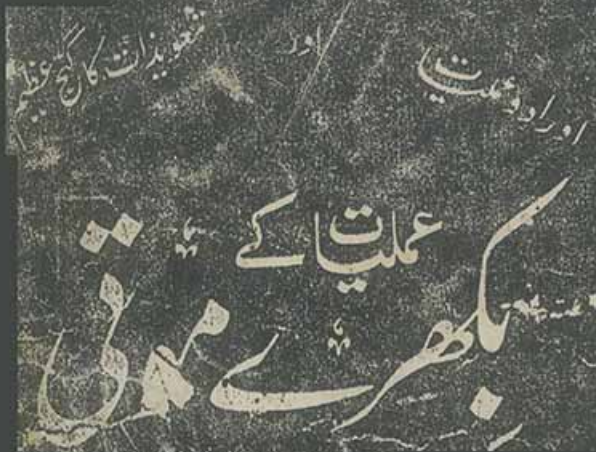 اوراد و عملیات اور تعویذات کا گنج عظیم
عملیات کے
بکھرے موتی